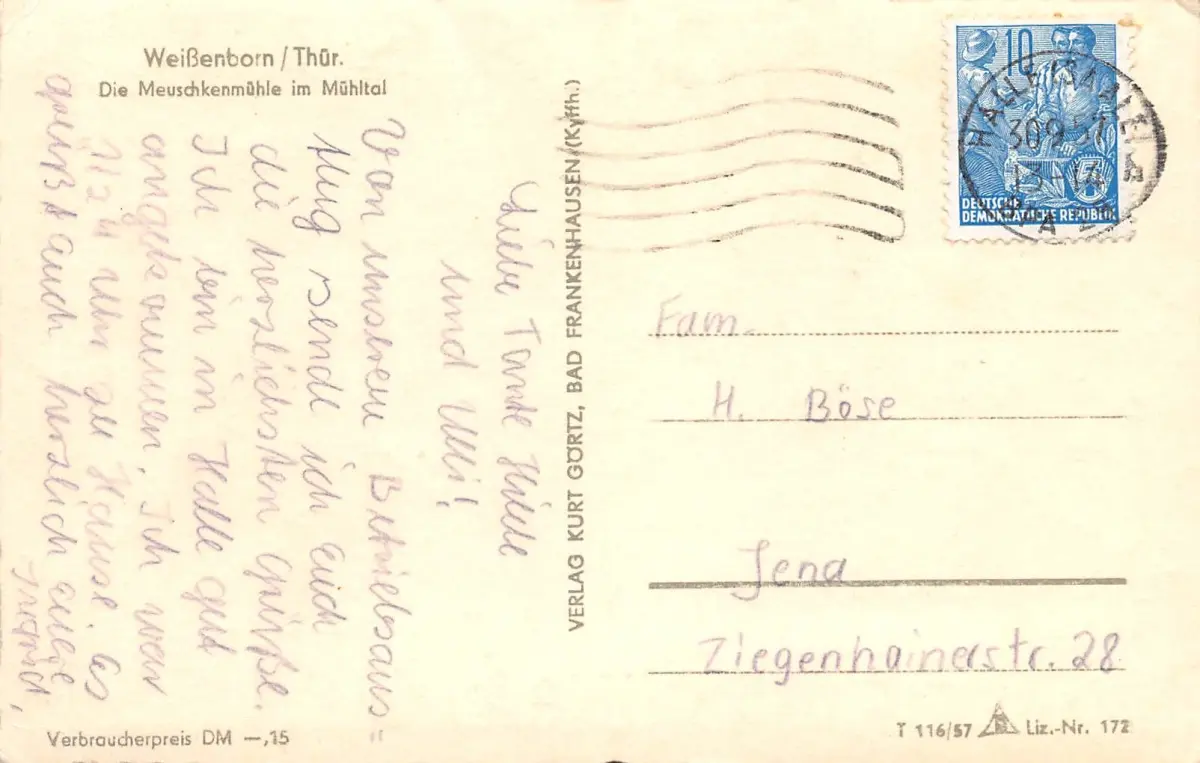 Weißenborn / Thür.
Die Meuschkenmühle im Mühltal
Liebe Tante Hilde
und Ulli!
Von unsrem Betriebsaus=
flug sende ich Euch
die herzlichsten Grüße.
Ich bin in Halle gut
angekommen. Ich war
Uhr zu Hause. Es
grüßt auch herzlich eure
Ingrid.
Verbraucherpreis DM —,15
VERLAG KURT GÖRTZ, BAD FRANKENHAUSEN (Kyffh.)
10
DEUTSCHE
DEMOKRATISCHE REPUBLIK
HALLE (SAALE)
30.9.57
13-14
A
Fam.
H. Böse
Jena
Ziegenhainerstr. 28
T 116/57 Liz.-Nr. 172